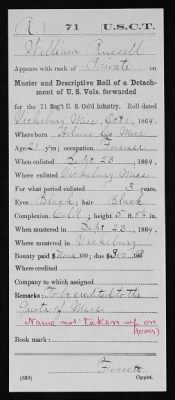 R | 71 | U.S.C.T.
William Russell
Appears with rank of Private on
Muster and Descriptive Roll of a Detach-
ment of U. S. Vols. forwarded
for the 71 Reg't U. S. Col'd Infantry. Roll dated
Vicksburg Miss, Oct 1, 1864.
Where born Holmes Co. Miss.
Age 21 y'rs; occupation Farmer
When enlisted Sept 23, 1864.
Where enlisted Vicksburg Miss.
For what period enlisted 3 years.
Eyes Black; hair Black
Complexion Cold; height 5 ft. in.
When mustered in Sept 23, 1864.
Where mustered in Vicksburg
Bounty paid $ None 100; due $ 100
Where credited
Company to which assigned
Remarks: To be credited to the
Quota of Mass.
Name not taken up on
Book mark:
(339) Copyist.